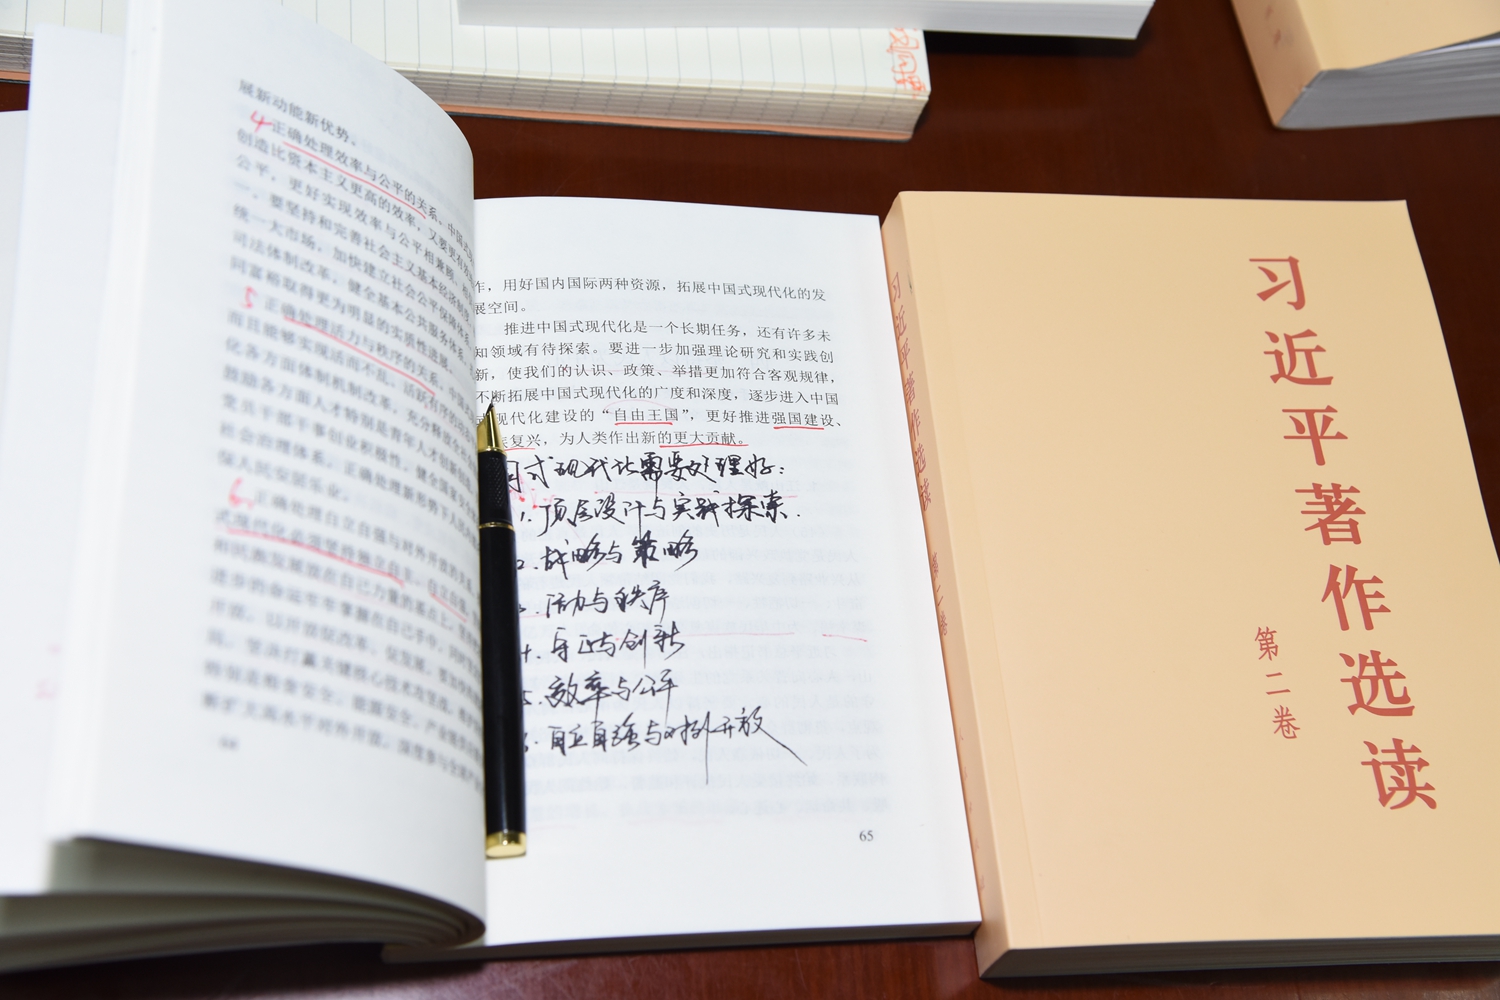 展新动能新优势。
4 正确处理效率与公平的关系。中国式
创造比资本主义更高的效率，又要更有效
公平，更好实现效率与公平相兼顾、相
要坚持和完善社会主义基本经济制度
统一大市场，加快建立社会公平保障体系
司法体制改革，健全基本公共服务体系
同富裕取得更为明显的实质性进展。
5 正确处理活力与秩序的关系。中国
而且能够实现活而不乱、活跃有序的
化各方面体制机制改革，充分释放全
鼓励各方面人才特别是青年人才创新
党员干部干事创业积极性。健全国家安全
社会治理体系，正确处理新形势下人民内
保人民安居乐业。
6. 正确处理自立自强与对外开放的关系。
式现代化必须坚持独立自主、自立自强，
和民族发展放在自己力量的基点上，
进步的命运牢牢掌握在自己手中。同时
开放，以开放促改革、促发展，
局，坚决打赢关键核心技术攻坚战，
特别是粮食安全、能源安全、产业
断扩大高水平对外开放，深度参与全球
作，用好国内国际两种资源，拓展中国式现代化的发
展空间。
推进中国式现代化是一个长期任务，还有许多未
知领域有待探索。要进一步加强理论研究和实践创
新，使我们的认识、政策、举措更加符合客观规律，
不断拓展中国式现代化的广度和深度，逐步进入中国
式现代化建设的“自由王国”，更好推进强国建设、
族复兴，为人类作出新的更大贡献。
式现代化需要处理好：
1. 顶层设计与实践探索.
2. 战略与策略
3. 活力与秩序
4. 守正与创新
5. 效率与公平
6. 自立自强与对外开放
65
习近平著作选读
第二卷
习近平著作选读
第二卷